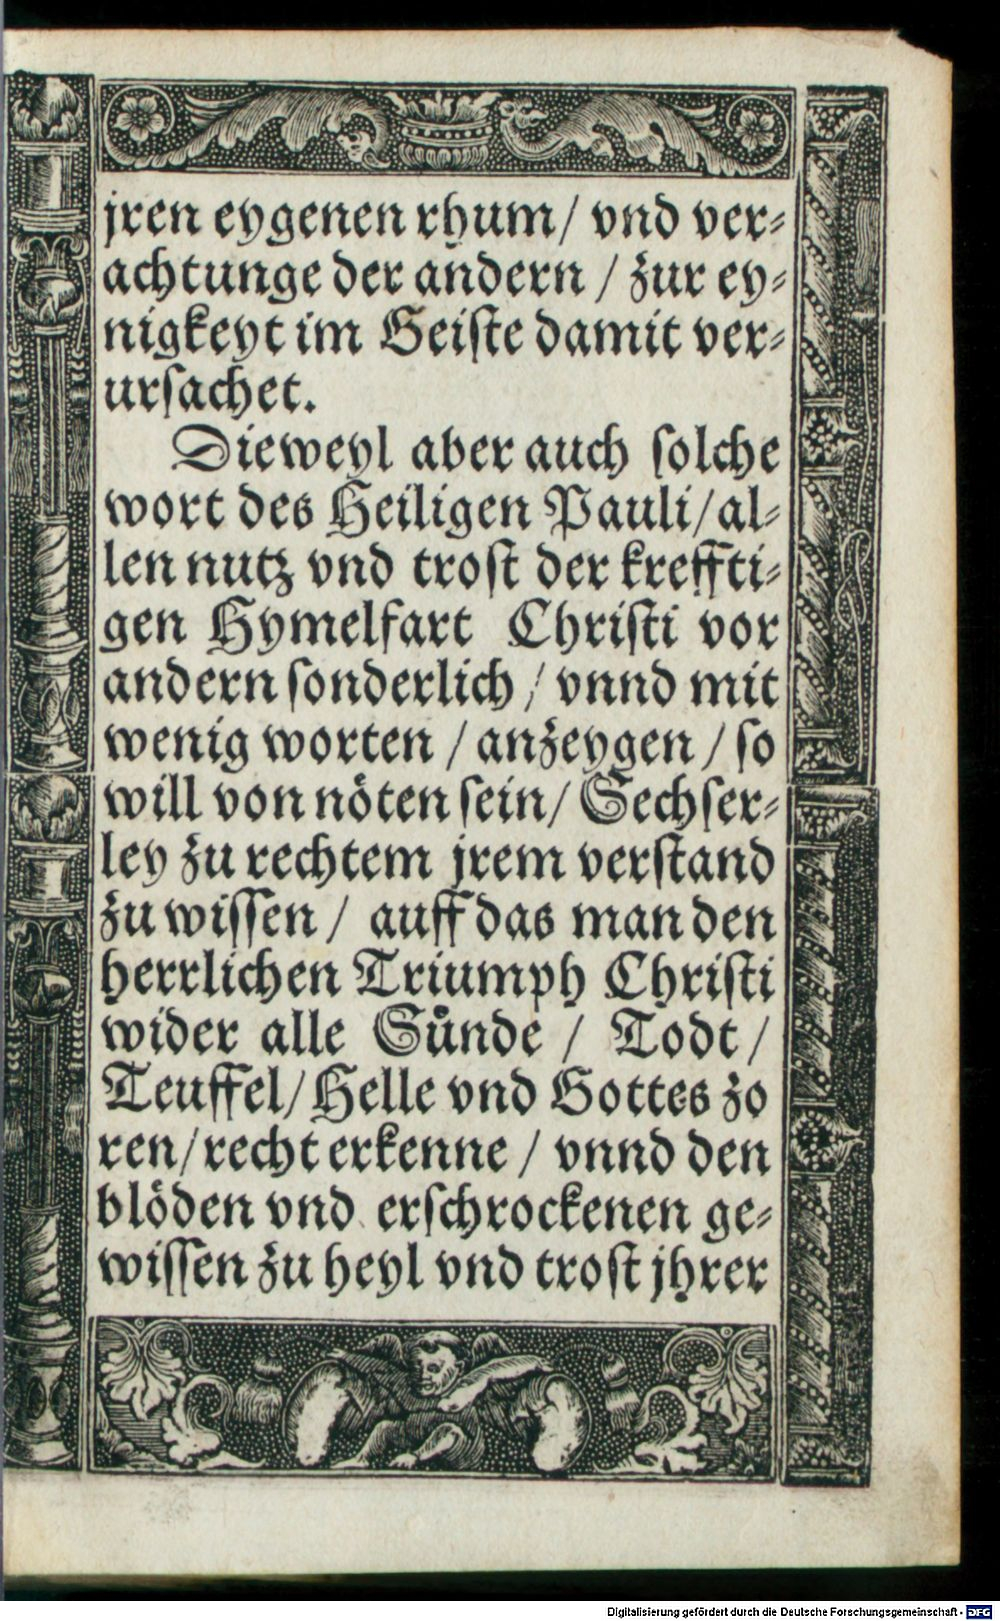 jren eygenen rhum / vnd ver⸗
achtunge der andern / zur ey⸗
nigkeyt im Geiſte damit ver⸗
urſachet.
Dieweyl aber auch ſolche
wort des Heiligen Pauli / al⸗
len nutz vnd troſt der kreffti⸗
gen Hymelfart Chriſti vor
andern ſonderlich / vnnd mit
wenig worten / anzeygen / ſo
will von nöten ſein / Sechſer⸗
ley zu rechtem jrem verſtand
zu wiſſen / auff das man den
herrlichen Triumph Chriſti
wider alle Sůnde / Todt /
Teuffel / Helle vnd Gottes zo
ren / recht erkenne / vnnd den
blöden vnd erſchrockenen ge⸗
wiſſen zu heyl vnd troſt jhrer
Digitalisierung gefördert durch die Deutsche Forschungsgemeinschaft - DFG